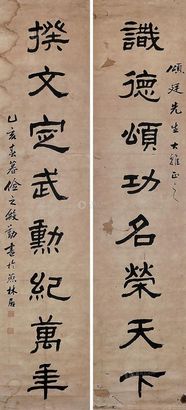 識德頌功名榮天下
頌廷先生大雅正之
撰文定武勳紀萬年
乙亥春暮儉之殷勤書於蕉林居